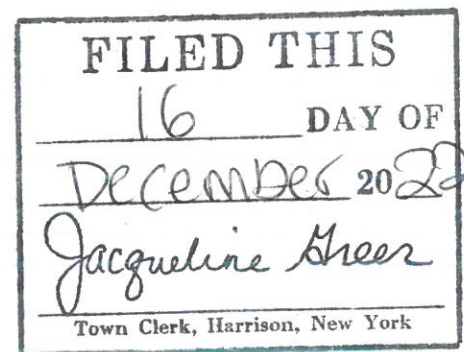 FILED THIS
16 DAY OF
December 2022
Jacqueline Greer
Town Clerk, Harrison, New York